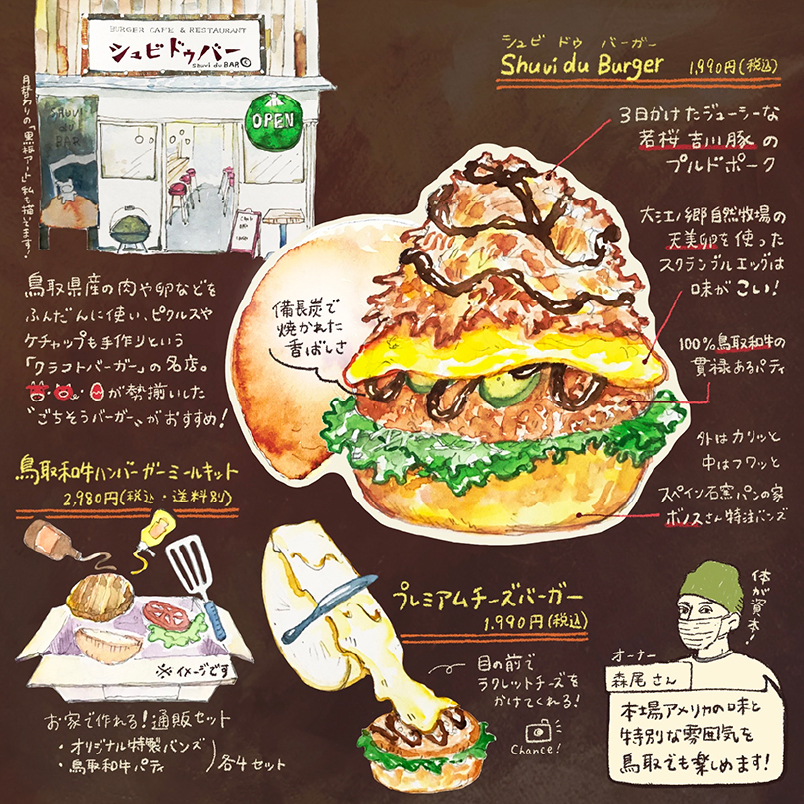 BURGER CAFE & RESTAURANT
シュビドゥバー
Shuvi du BAR
OPEN
SHUVI
du
BAR
月替わりの「黒板アート」私も描いてます!
シュビ ドゥ バーガー
Shuvi du Burger 1,990円(税込)
3日かけたジューシーな
若桜 吉川豚の
プルドポーク
大江ノ郷自然牧場の
天美卵を使った
スクランブルエッグは
味がこい!
備長炭で
焼かれた
香ばしさ
100%鳥取和牛の
貫禄あるパティ
外はカリッと
中はフワッと
スペイン石窯パンの家
ボノスさん特注バンズ
鳥取県産の肉や卵などを
ふんだんに使い、ピクルスや
ケチャップも手作りという
「クラフトバーガー」の名店。
が勢揃いした
"ごちそうバーガー"がおすすめ!
鳥取和牛ハンバーガーミールキット
2,980円(税込・送料別)
※イメージです
お家で作れる!通販セット
・オリジナル特製バンズ
・鳥取和牛パティ
各4セット
プレミアムチーズバーガー
1,990円(税込)
目の前で
ラクレットチーズを
かけてくれる!
Chance!
体が資本!
オーナー
森尾さん
本場アメリカの味と
特別な雰囲気を
鳥取でも楽しめます!